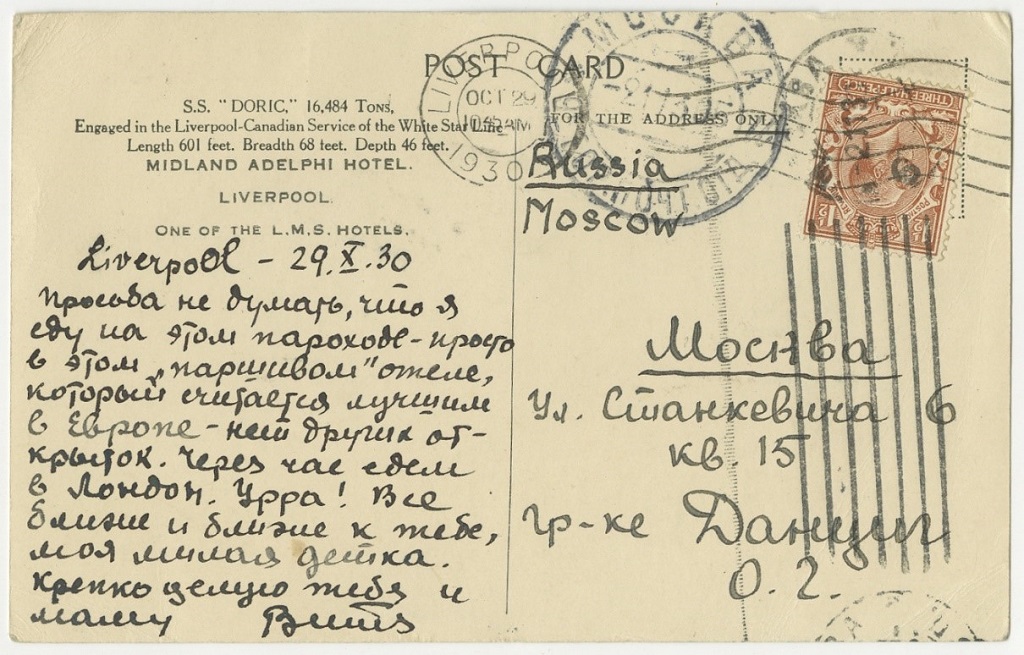 POST CARD
FOR THE ADDRESS ONLY
S.S. "DORIC," 16,484 Tons,
Engaged in the Liverpool-Canadian Service of the White Star Line
Length 601 feet. Breadth 68 feet. Depth 46 feet.
MIDLAND ADELPHI HOTEL.
LIVERPOOL.
ONE OF THE L.M.S. HOTELS.
Liverpool - 29.X.30
просьба не думать, что я
еду на этом пароходе - просто
в этом „паршивом" отеле,
который считается лучшим
в Европе - нет других от-
крыток. Через час едем
в Лондон. Урра! Все
ближе и ближе к тебе,
моя милая детка.
Крепко целую тебя и
маму Витя
LIVERPOOL
OCT 29
1045 AM
1930
МОСКВА
Russia
Moscow
Москва
Ул. Станкевича 6
кв. 15
гр-ке Данциг
О. Г.
THREE HALFPENCE